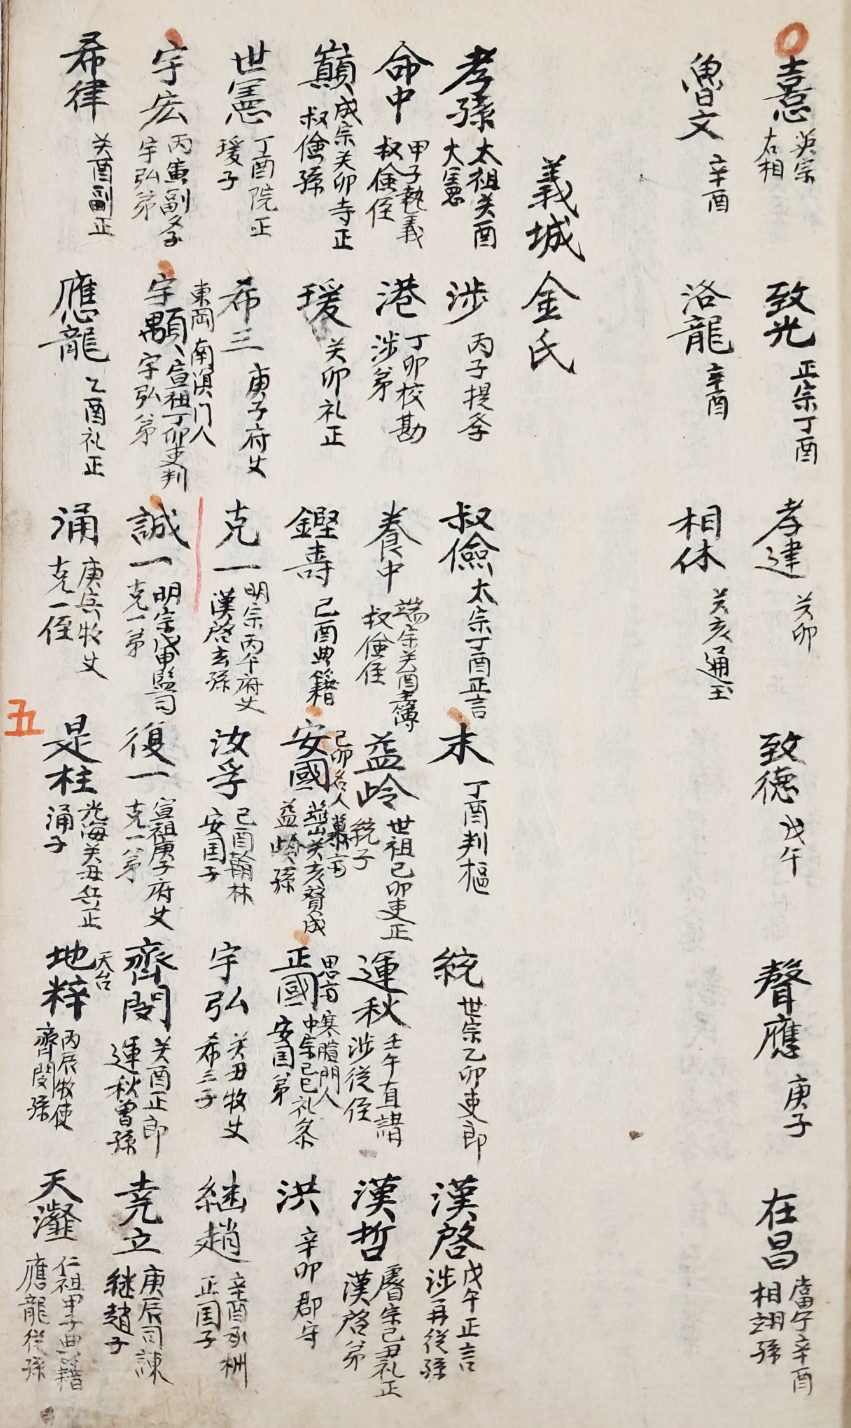 憙 英宗右相
致光 正宗丁酉
孝建 癸卯
致德 戊午
聲應 庚子
在昌 當宁辛酉 相翊孫
魯文 辛酉
洛龍 辛酉
相休 癸亥通玉
義城金氏
孝孫 太祖癸酉大憲
涉 丙子提学
叔儉 太宗丁酉正言
末 丁酉判樞
統 世宗乙卯吏郎
漢啓 戊午正言 涉再從孫
命中 甲子執義 叔儉侄
港 丁卯校勘 涉弟
養中 端宗癸酉主簿 叔儉侄
益岭 世祖己卯吏正 統子
運秋 壬午直講 涉從侄
漢哲 睿宗己丑礼正 漢啓弟
巓 成宗癸卯寺正 叔儉孫
瑗 癸卯礼正
鏗壽 己酉典籍
安國 己卯名人 慕斎 燕山癸亥賛成 益岭孫
正國 思斎 寒暄門人 中宗己巳礼参 安国弟
洪 辛卯郡守
世憲 丁酉院正 瑗子
希三 庚子府丈
克一 明宗丙午府丈 漢啓玄孫
汝孚 己酉翰林 安国子
宇弘 癸丑牧丈 希三子
継趙 辛酉承 正国子
宇宏 丙寅副学 宇弘弟
宇顒 東岡 南溟门人 宣祖丁卯吏判 宇弘弟
誠一 明宗戊申監司 克一弟
復一 宣祖庚子府丈 克一弟
齊閔 癸酉正郎 運秋曾孫
尭立 庚辰司諫 継趙子
希律 癸酉副正
應龍 乙酉礼正
涌 庚寅牧丈 克一侄
是柱 光海癸丑兵正 涌子
地粹 天台 丙辰牧使 齊閔孫
天𤅢 仁祖甲子典籍 應龍從孫
五